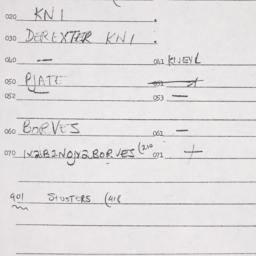 020 KNI .
030 DEREXTHR KNI .
040 — 041 KNEYL
050 PLATE 051
052 053 —
060 BORVES 061 —
070 1X21B2N0JX2BORVES (210 071 +
901 SIUSTERS (418